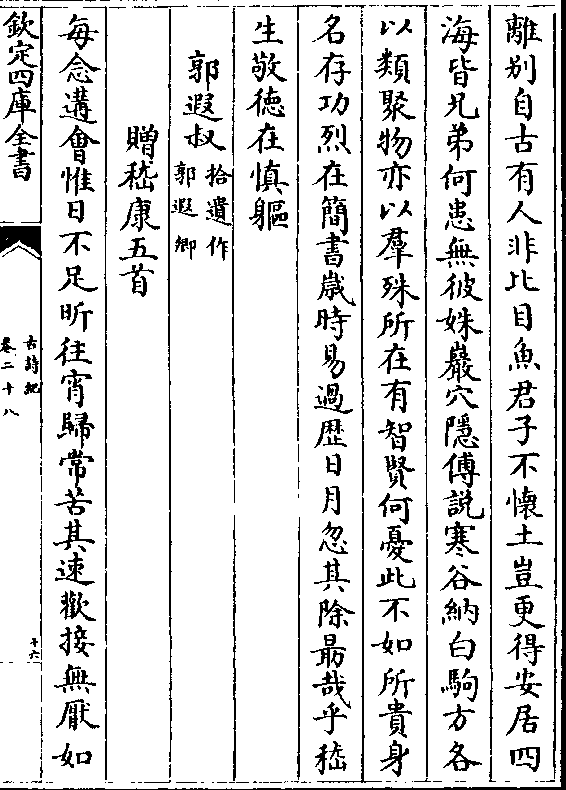 離别自古有人非比目魚君子不懷土豈更得安居四
海皆兄弟何患無彼姝巖穴隱傅説寒谷納白駒方各
以類聚物亦以羣殊所在有智賢何憂此不如所貴身
名存功烈在簡書嵗時易過歴日月忽其除朂哉乎嵇
生敬徳在慎軀
郭遐叔
拾遺作
郭遐卿
贈嵇康五首
每念遘會惟日不足昕往宵歸常苦其速歡接無厭如
欽定四庫全書
古詩紀
卷二十八
十六